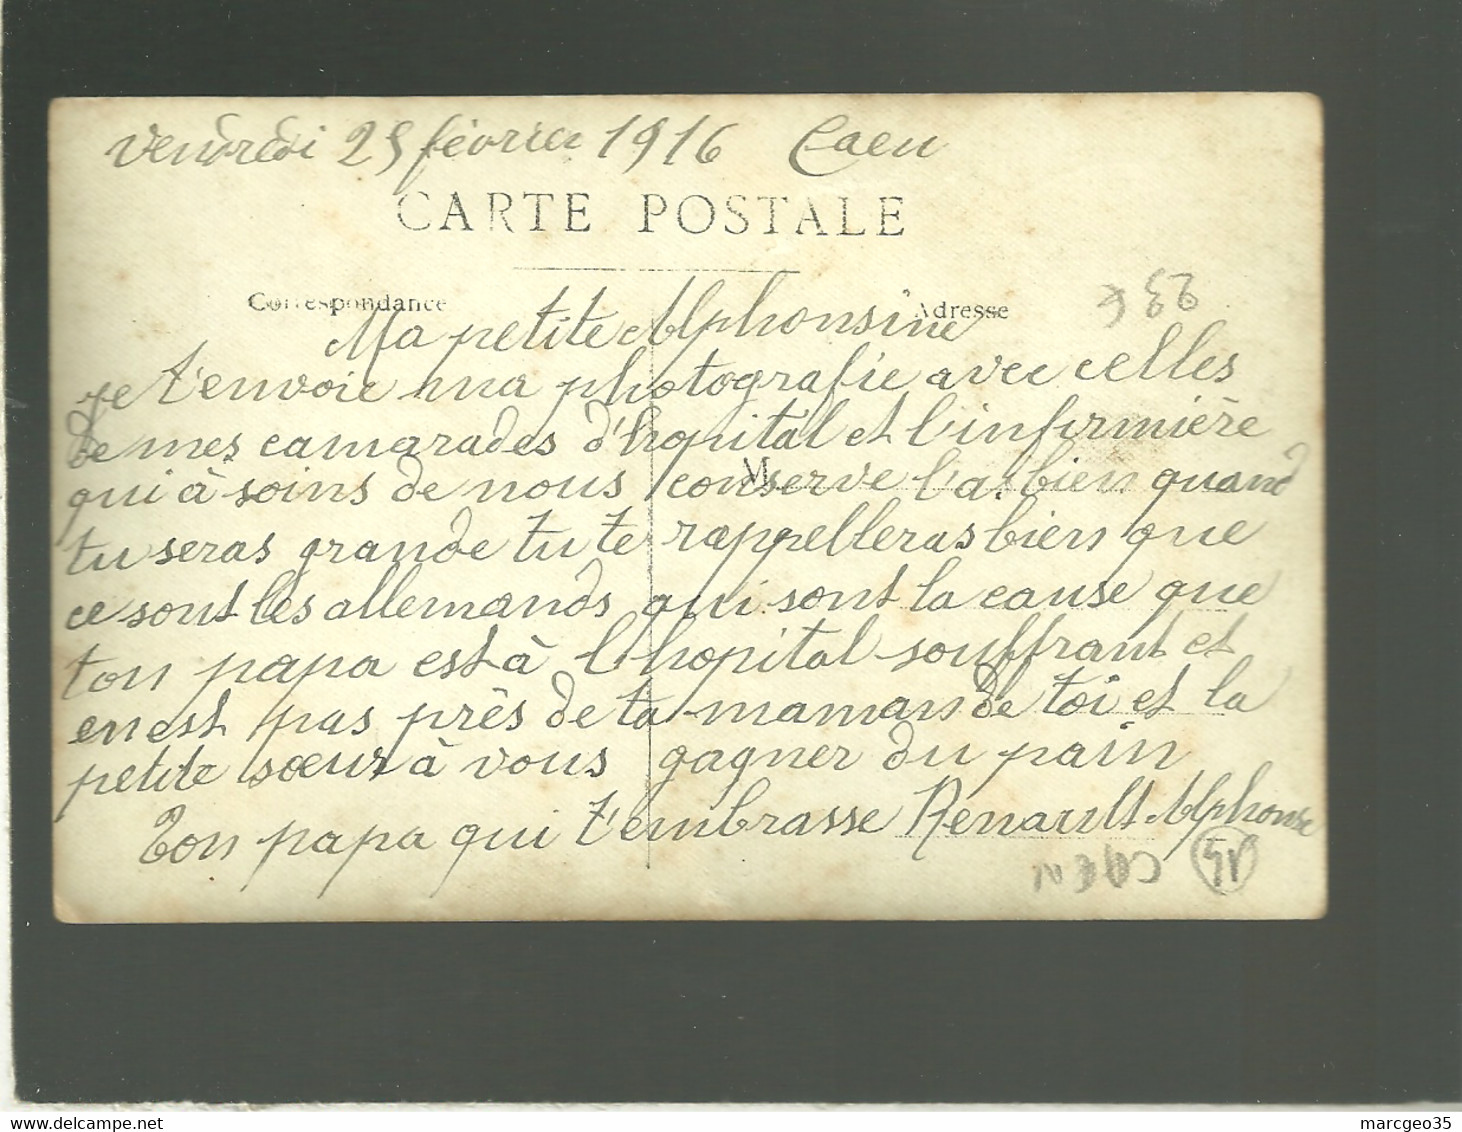 Vendredi 25 février 1916 Caen
CARTE POSTALE
Correspondance Adresse
236
Ma petite Alphonsine
je t'envoie ma photografie avec celles
de mes camarades d'hopital et l'infirmière
qui à soins de nous conserve la bien quand
M
tu seras grande tu te rappelleras bien que
ce sont les allemands qui sont la cause que
ton papa est à l'hopital souffrant et
en est pas près de ta maman de toi et la
petite sœur à vous gagner du pain
Ton papa qui t'embrasse Renault Alphonse
Caen
15
marcgeo35